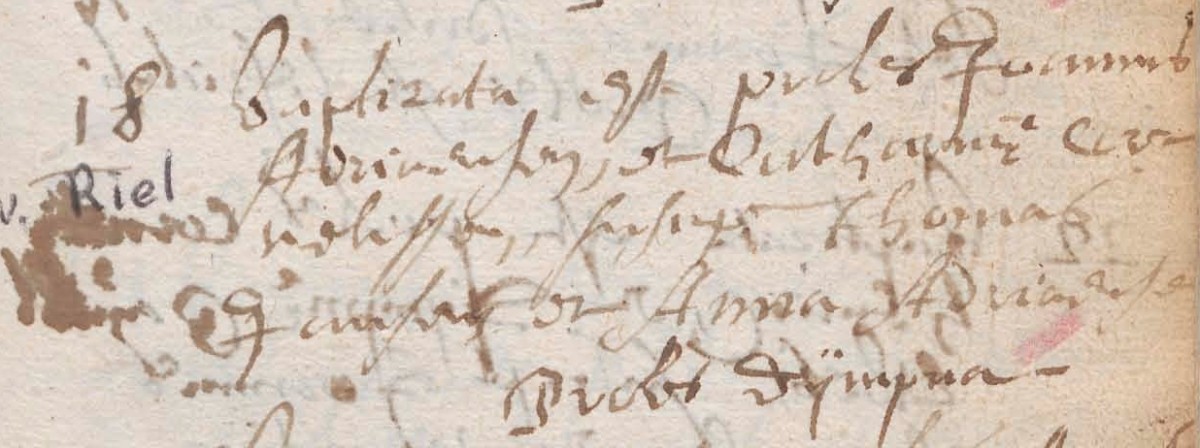 18 Baptizata est proles Joannis
Adriaensen, et Catharinæ Cor-
v. Riel
nelissen, suscep: Thomas
Jansen et Anna Adriaense
Proles Dÿmpna